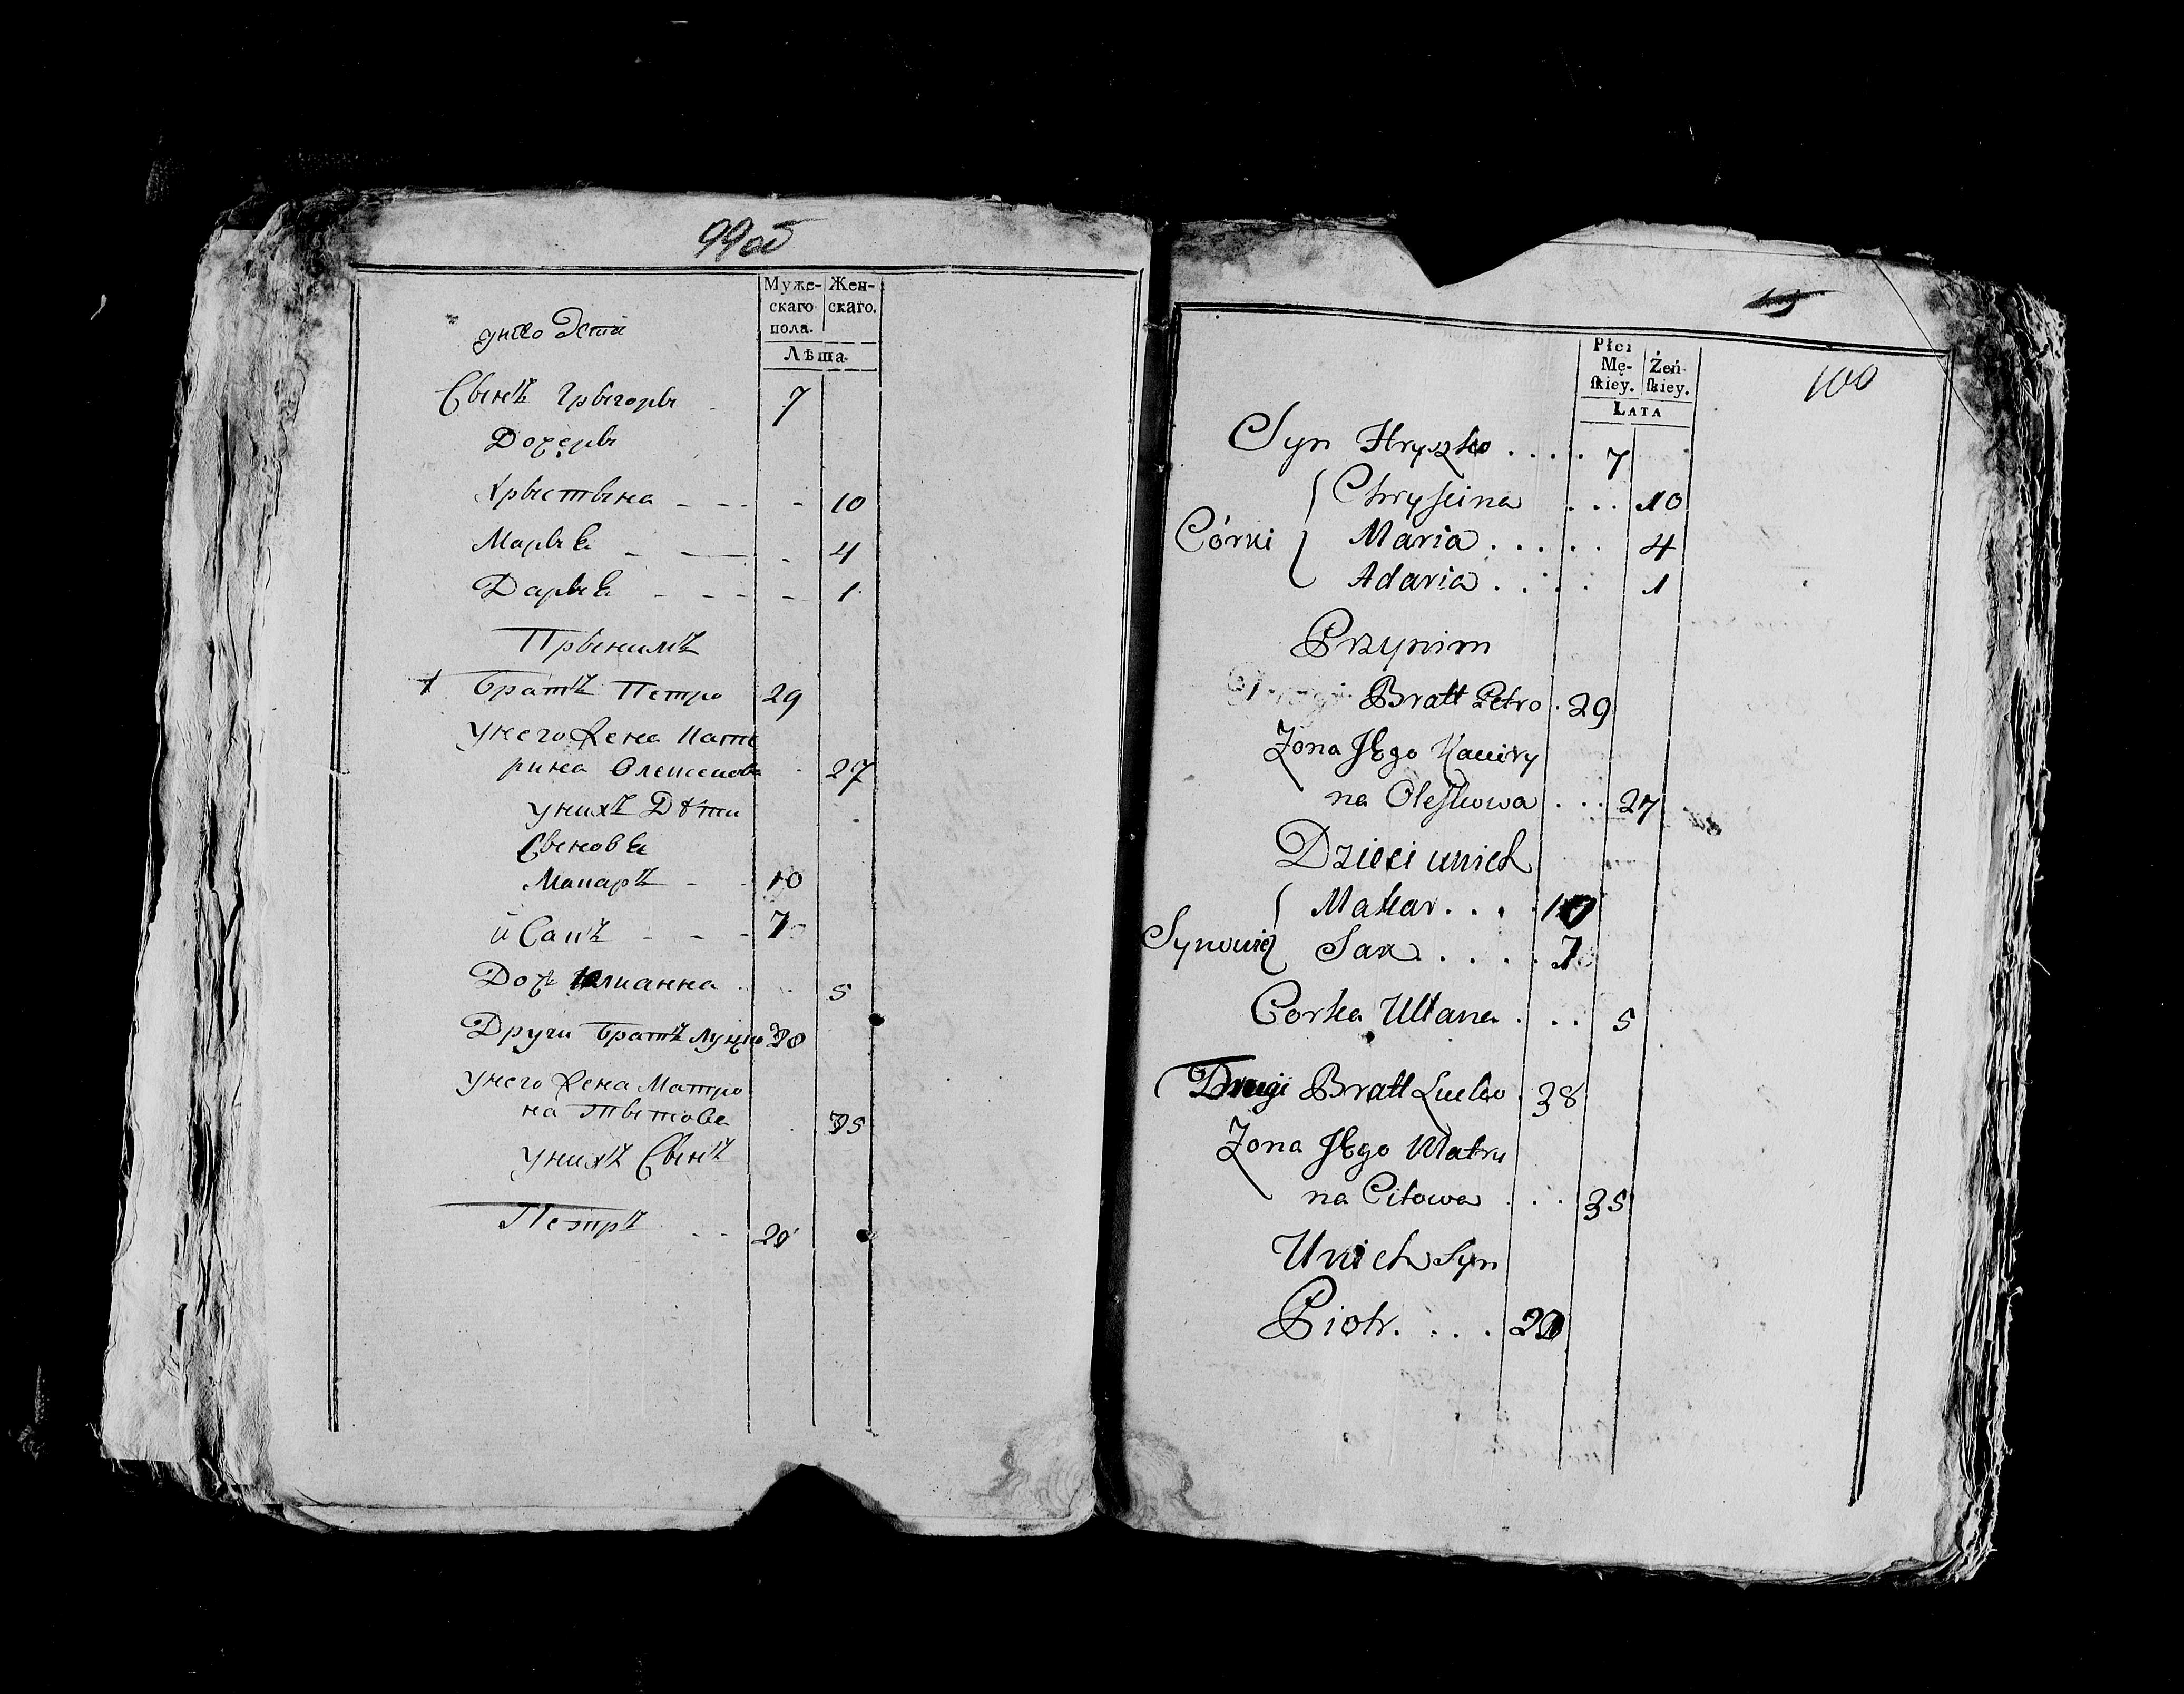 99об
Муже- Жен-
скаго скаго.
пола.
Лѣта.
унего Дети
Сынъ Грыгоры 7
Дочеры
Хрыстына 10
Марыя 4
Дарыя 1
Прынимъ
Братъ Петро 29
унего Жена Кате
рина Олексеева 27
унихъ Дѣти
Сыновя
Макаръ 10
и Сакъ 7
Доч Юлианна 5
Други Братъ Луцко 38
унего Жена Матро
на Тытова 35
унихъ Сынъ
Петръ 20
100
Płci
Mę- Żeń-
ſkiey. ſkiey.
LATA
Syn Hryszko . . . . 7
Córki
Chryſcina . . . 10
Maria . . . . . 4
Adaria . . . . 1
Przynim
Bratt Petro . 29
Zona JEgo Katiry
na Oleſkowa . . . 27
Dzieci unich
Synowie
Makar . . . . 10
Sak . . . . . 7
Corka Ullana . . . 5
Drugi Bratt Lucko . 38
Zona JEgo Matru
na Citowa . . . 35
Unich Syn
Piotr . . . . 20